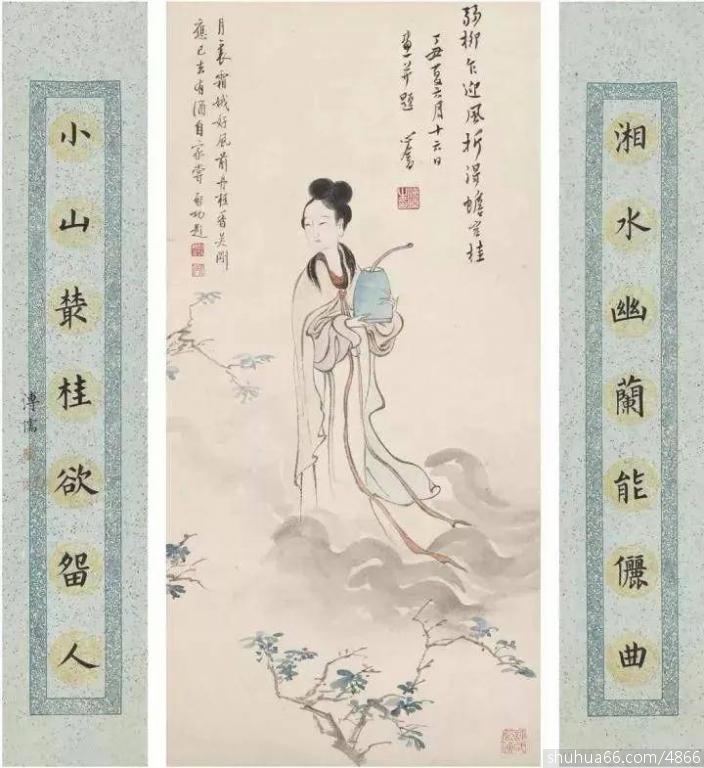 湘水幽蘭能儷曲
弱柳乍迎風折得蟾宮桂
丁丑夏六月十六日
畫并題 心畬
月裏霜娥好風前丹桂香吳剛
應已去有酒自家嘗 啟功題
小山叢桂欲㽞人
溥儒
shuhua66.com/4866